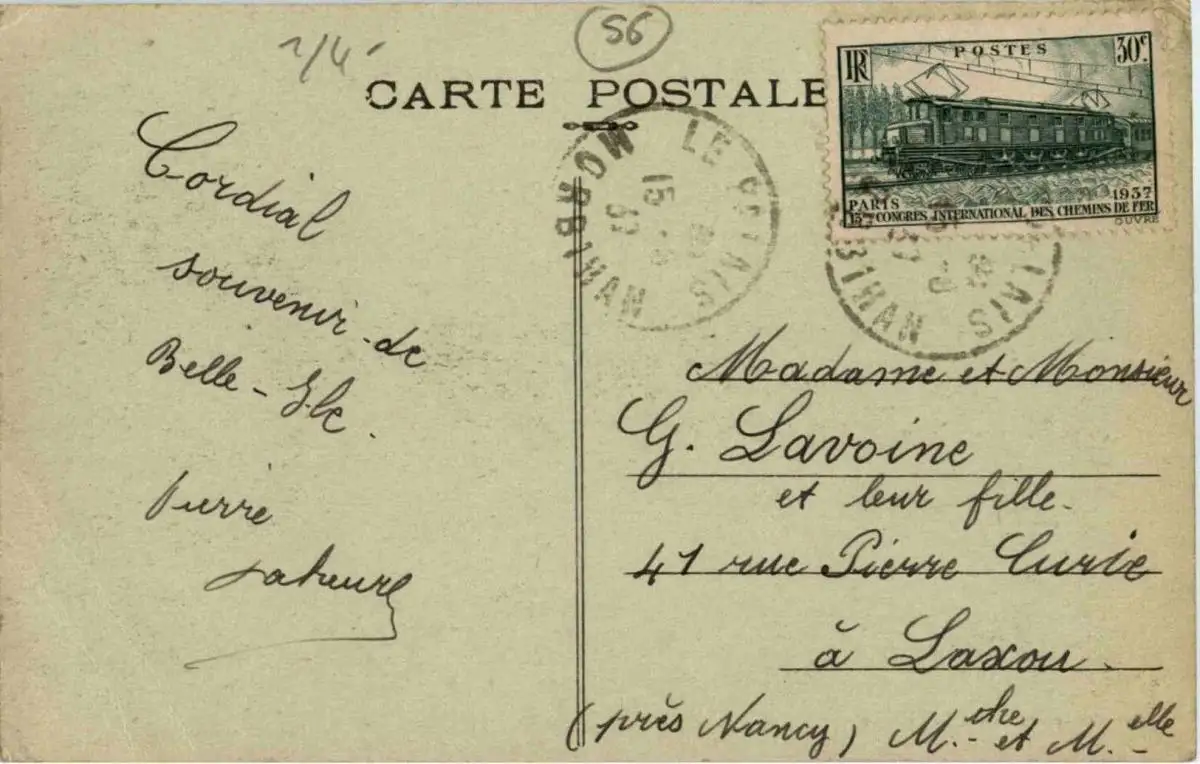 56
CARTE POSTALE
POSTES
30c.
RF
PARIS 1937
13me CONGRES INTERNATIONAL DES CHEMINS DE FER
OUVRÉ
LE PALAIS
MORBIHAN
15
37
Cordial
souvenir de
Belle-Ile.
Pierre
Madame et Monsieur
G. Lavoine
et leur fille.
41 rue Pierre Curie
à Laxou.
(près Nancy) M.the et M.elle